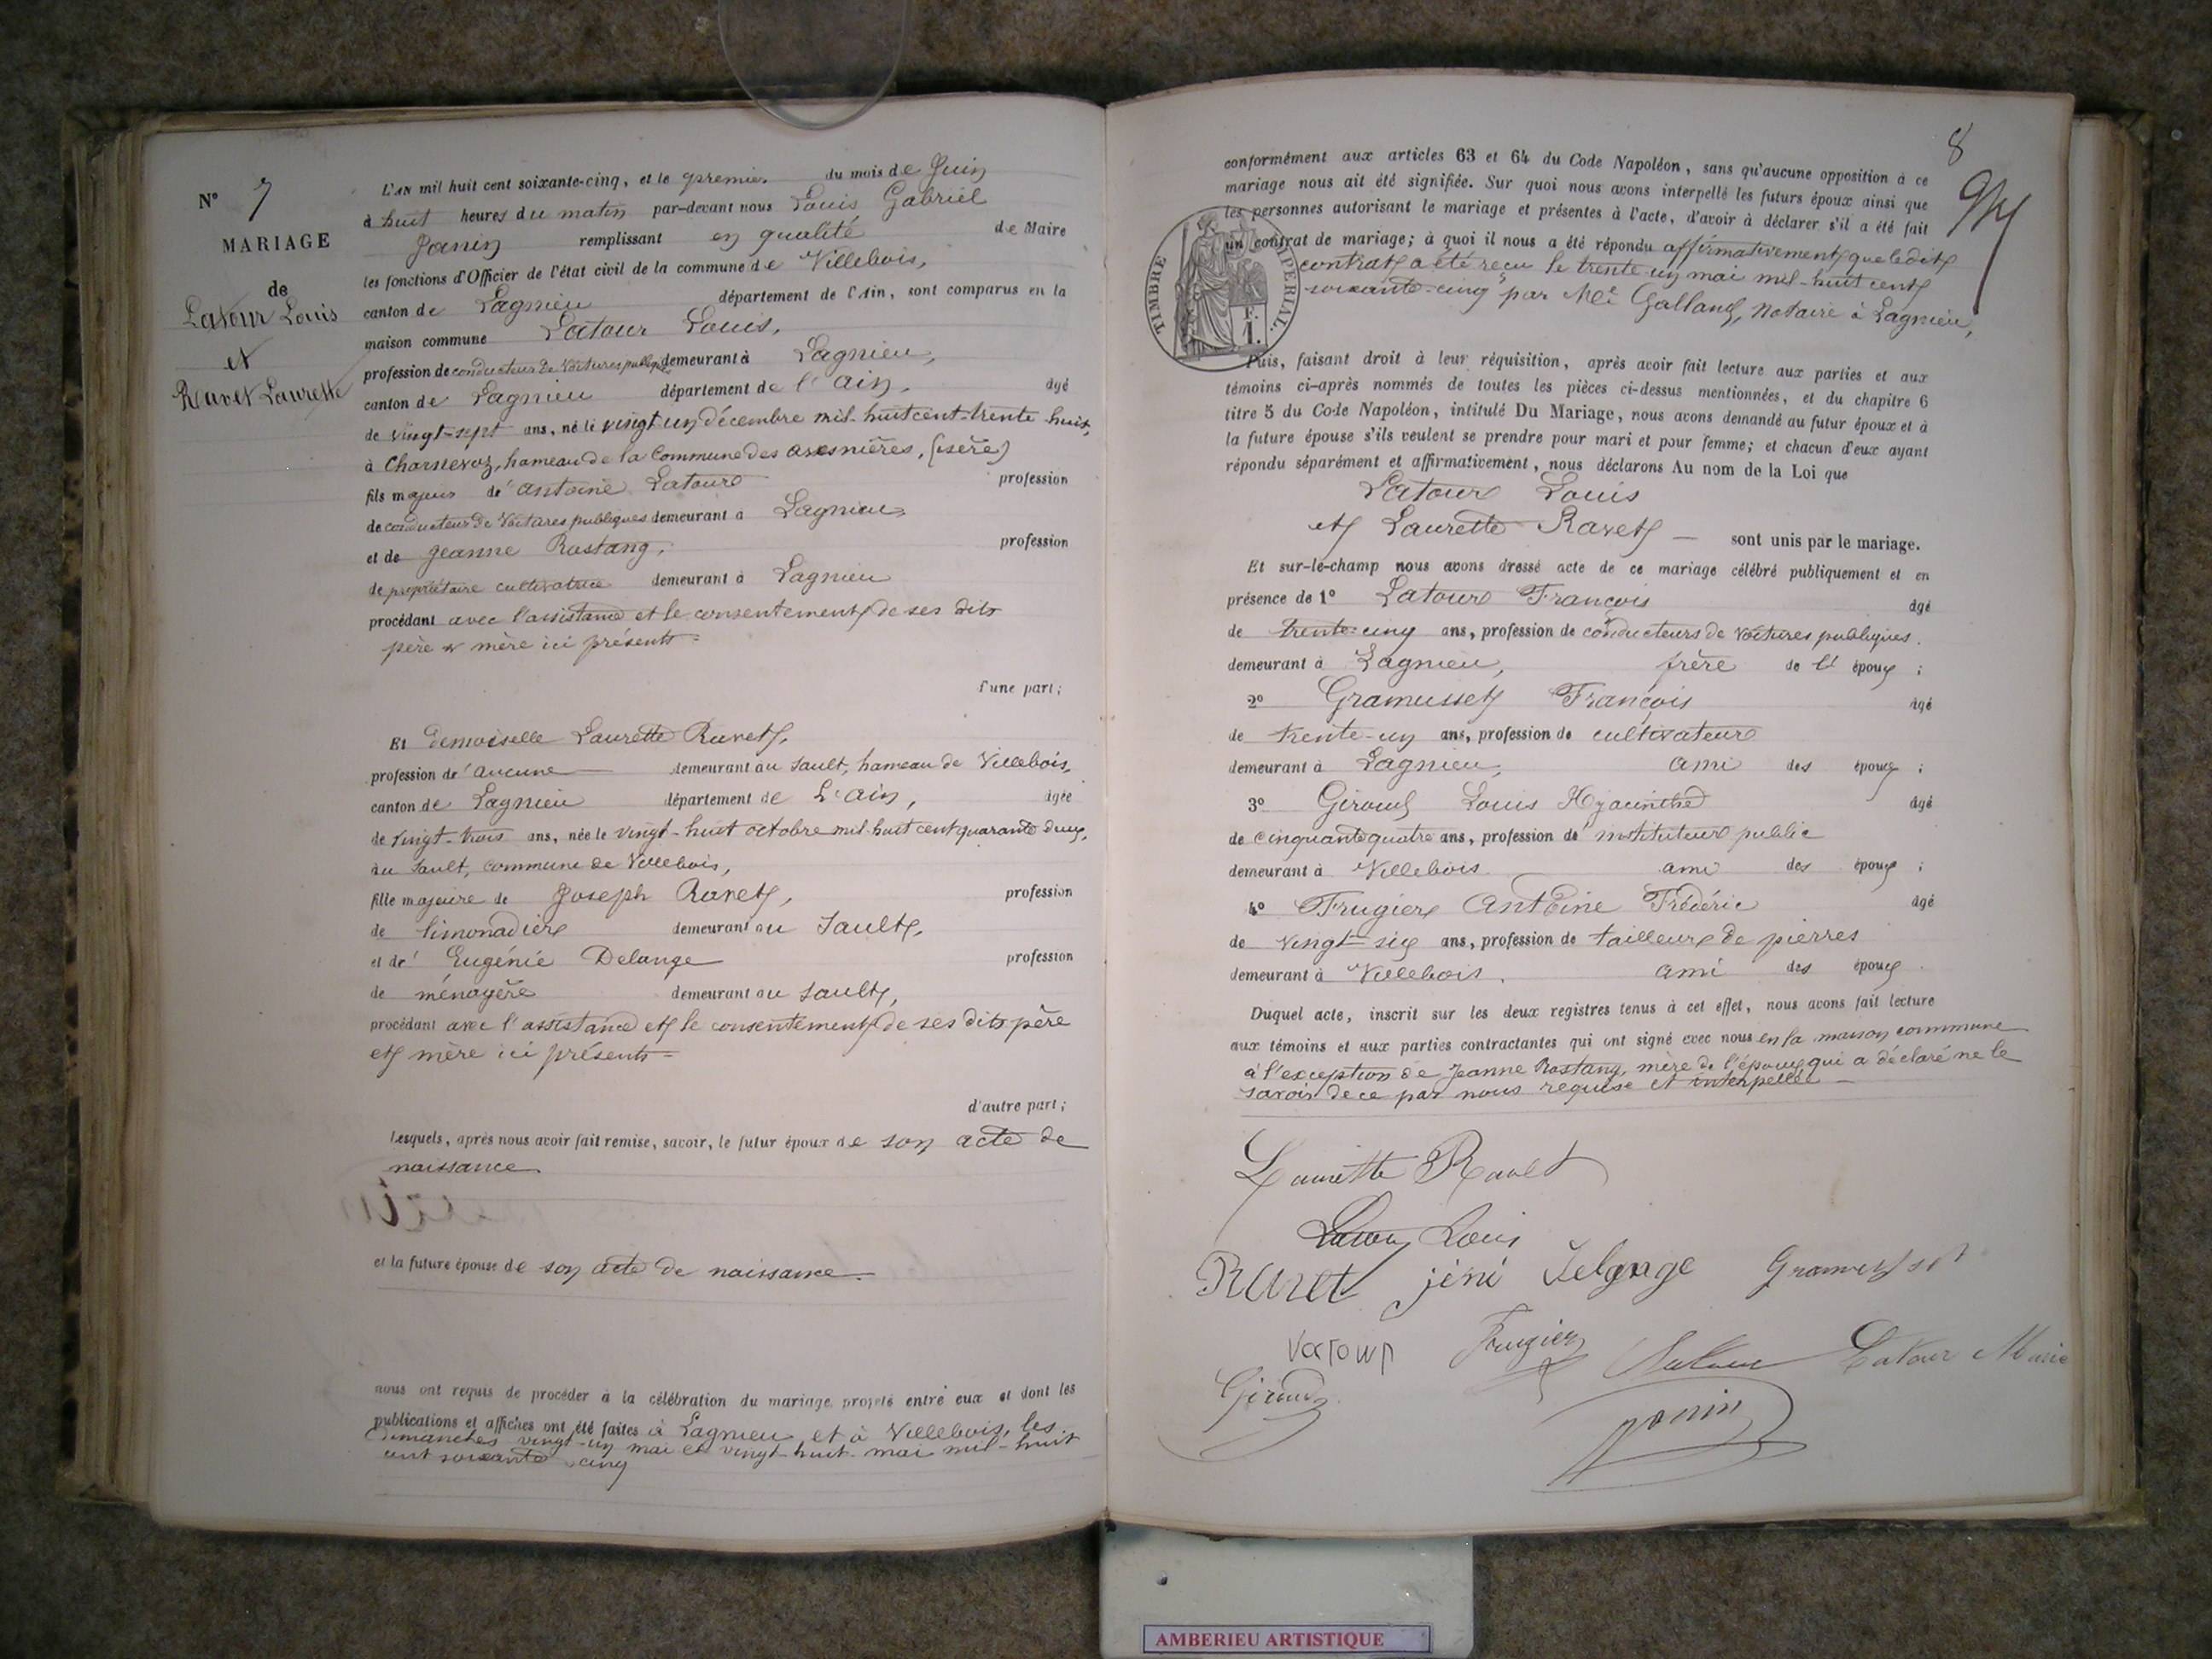 N° 7
MARIAGE
de
Latour Louis
et
Ravet Laurette
L'AN mil huit cent soixante-cinq, et le premier du mois de Juin
à huit heures du matin par-devant nous Louis Gabriel
Janin remplissant en qualité de Maire
les fonctions d'Officier de l'état civil de la commune de Villebois,
canton de Lagnieu département de l'Ain, sont comparus en la
maison commune Latour Louis,
profession de conducteur de voitures publiques demeurant à Lagnieu,
canton de Lagnieu département de l'Ain, âgé
de vingt-sept ans, né le vingt un décembre mil-huit cent-trente-huit,
à Charnevoz, hameau de la Commune des avenières, (isère)
fils majeur de antoine Latour profession
de conducteur de Voitures publiques demeurant à Lagnieu,
et de Jeanne Rostang, profession
de propriétaire cultivatrice demeurant à Lagnieu
procédant avec l'assistance et le consentement de ses dits
père & mère ici présents =
l'une part;
Et demoiselle Laurette Ravet,
profession de aucune demeurant au Sault, hameau de Villebois,
canton de Lagnieu département de L'ain, âgée
de vingt-trois ans, née le vingt-huit octobre mil huit cent quarante deux,
au Sault, commune de Villebois,
fille majeure de Joseph Ravet, profession
de limonadier demeurant au Sault,
et de Eugénie Delange profession
de ménagère demeurant au Sault,
procédant avec l'assistance et le consentement de ses dits père
et mère ici présents =
d'autre part;
Lesquels, après nous avoir fait remise, savoir, le futur époux de son acte de
naissance
et la future épouse de son acte de naissance.
nous ont requis de procéder à la célébration du mariage projeté entre eux et dont les
publications et affiches ont été faites à Lagnieu et à Villebois, les
dimanches vingt-un mai et vingt-huit mai mil-huit
cent soixante cinq
8
conformément aux articles 63 et 64 du Code Napoléon, sans qu'aucune opposition à ce
mariage nous ait été signifiée. Sur quoi nous avons interpellé les futurs époux ainsi que
les personnes autorisant le mariage et présentes à l'acte, d'avoir à déclarer s'il a été fait
un contrat de mariage; à quoi il nous a été répondu affirmativement que le dit
contrat a été reçu le trente-un mai mil-huit cent
soixante-cinq par Me Galland, notaire à Lagnieu,
TIMBRE IMPERIAL.
1 F.
Puis, faisant droit à leur réquisition, après avoir fait lecture aux parties et aux
témoins ci-après nommés de toutes les pièces ci-dessus mentionnées, et du chapitre 6
titre 5 du Code Napoléon, intitulé Du Mariage, nous avons demandé au futur époux et à
la future épouse s'ils veulent se prendre pour mari et pour femme; et chacun d'eux ayant
répondu séparément et affirmativement, nous déclarons Au nom de la Loi que
Latour Louis
et Laurette Ravet — sont unis par le mariage.
Et sur-le-champ nous avons dressé acte de ce mariage célébré publiquement et en
présence de 1° Latour François âgé
de trente-cinq ans, profession de conducteur de voitures publiques.
demeurant à Lagnieu, frère de l' époux ;
2° Gramusset François âgé
de trente-un ans, profession de cultivateur
demeurant à Lagnieu, ami des époux ;
3° Giroud Louis Hyacinthe âgé
de cinquante quatre ans, profession de instituteur public
demeurant à Villebois ami des époux ;
4° Frugier Antoine Frédéric âgé
de vingt-six ans, profession de tailleur de pierres
demeurant à Villebois. ami des époux
Duquel acte, inscrit sur les deux registres tenus à cet effet, nous avons fait lecture
aux témoins et aux parties contractantes qui ont signé avec nous en la maison commune
à l'exception de Jeanne Rostang, mère de l'époux qui a déclaré ne le
savoir de ce par nous requise et interpellée —
Laurette Ravet
Latour Louis
Ravet jéni Delange Gramusset
Latour Frugier Latour Latour Marie
Giroud
Janin
AMBERIEU ARTISTIQUE